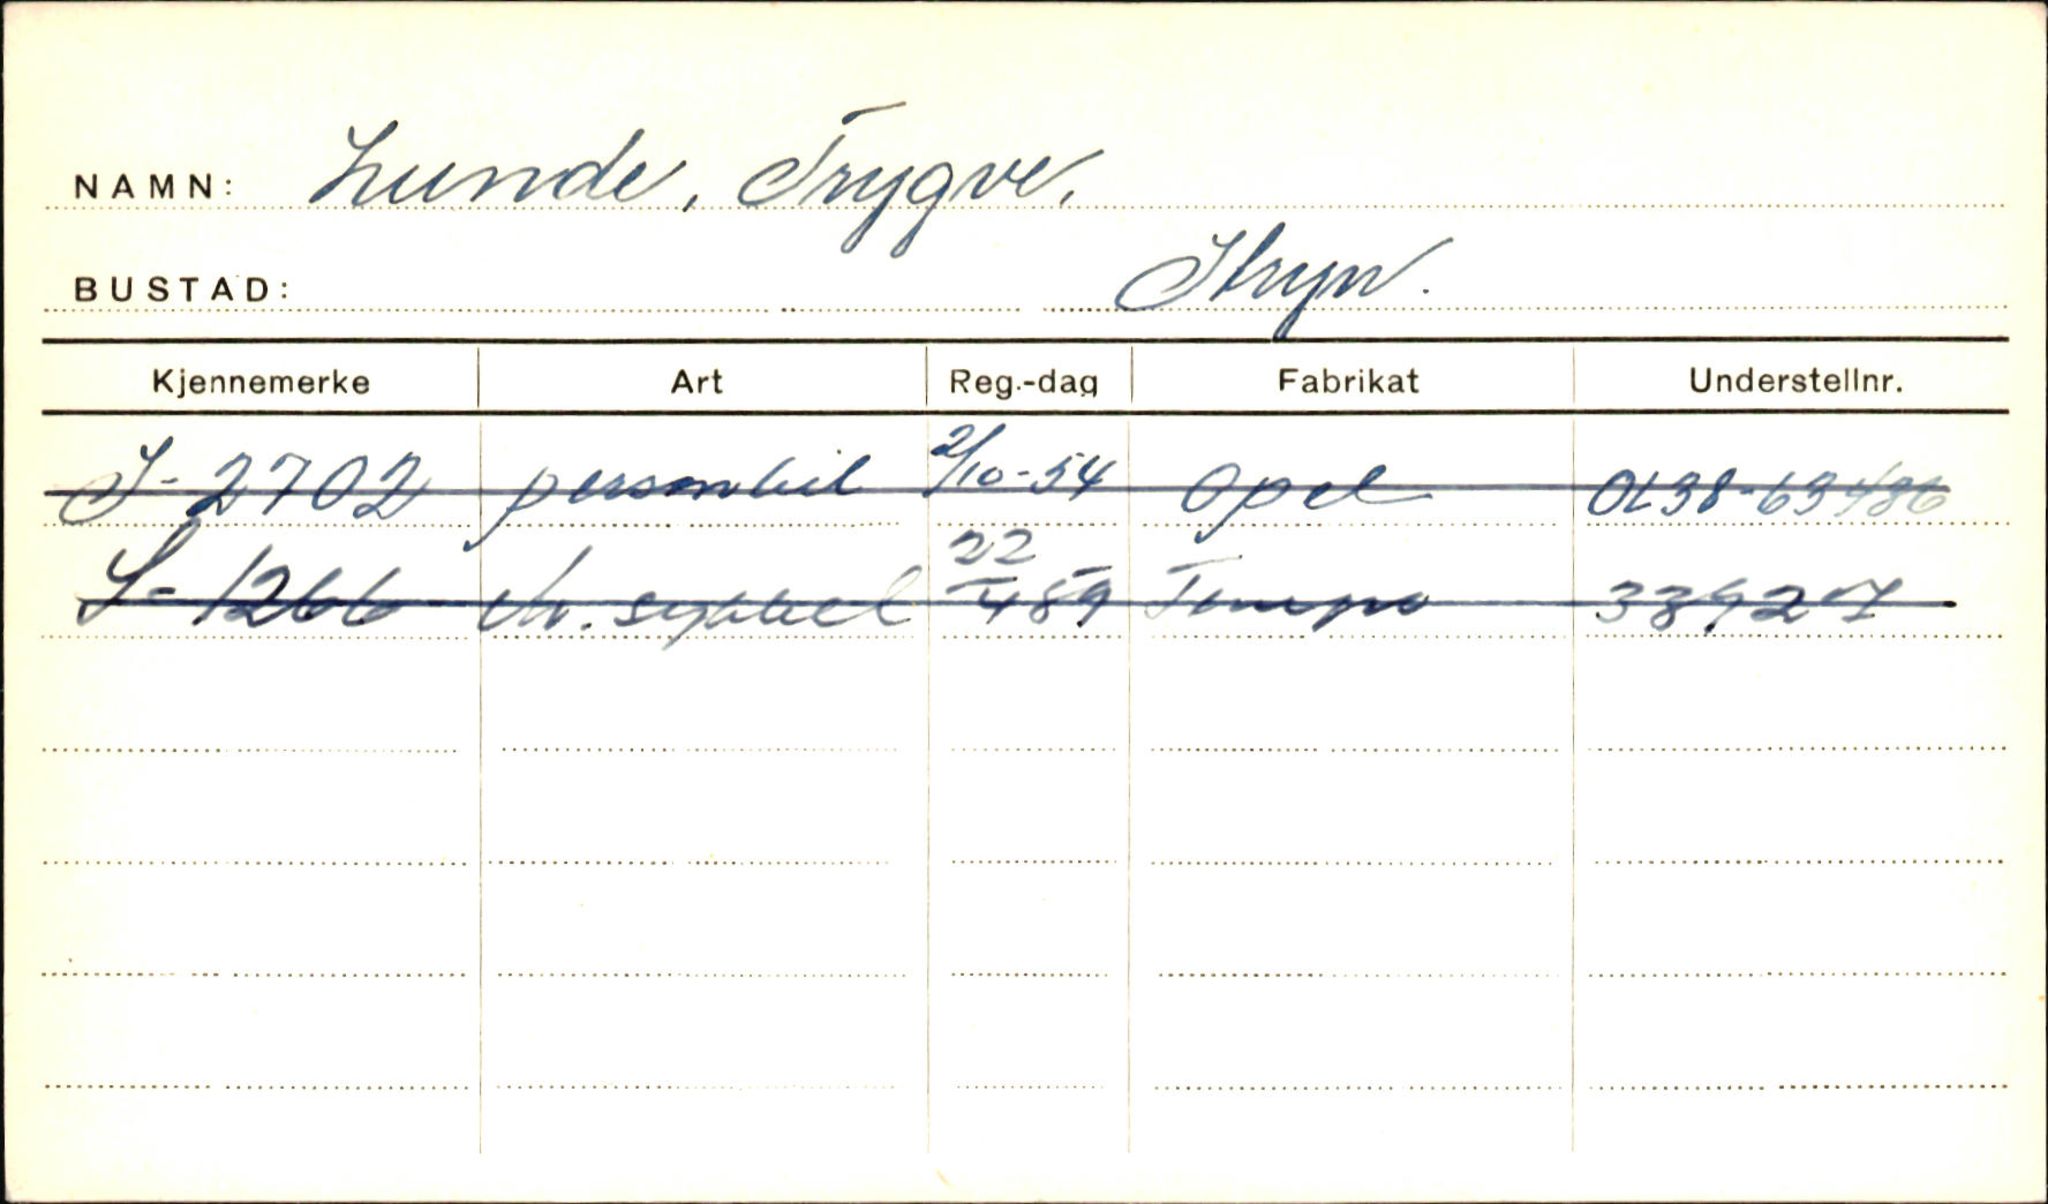 NAMN: Lunde, Trygve,
BUSTAD: Stryn.
Kjennemerke Art Reg.-dag Fabrikat Understellnr.
S-2702 personbil 2/10-54 Opel OL38-63486
S-1266 lv. sykkel 22/4 59 Tempo 339207